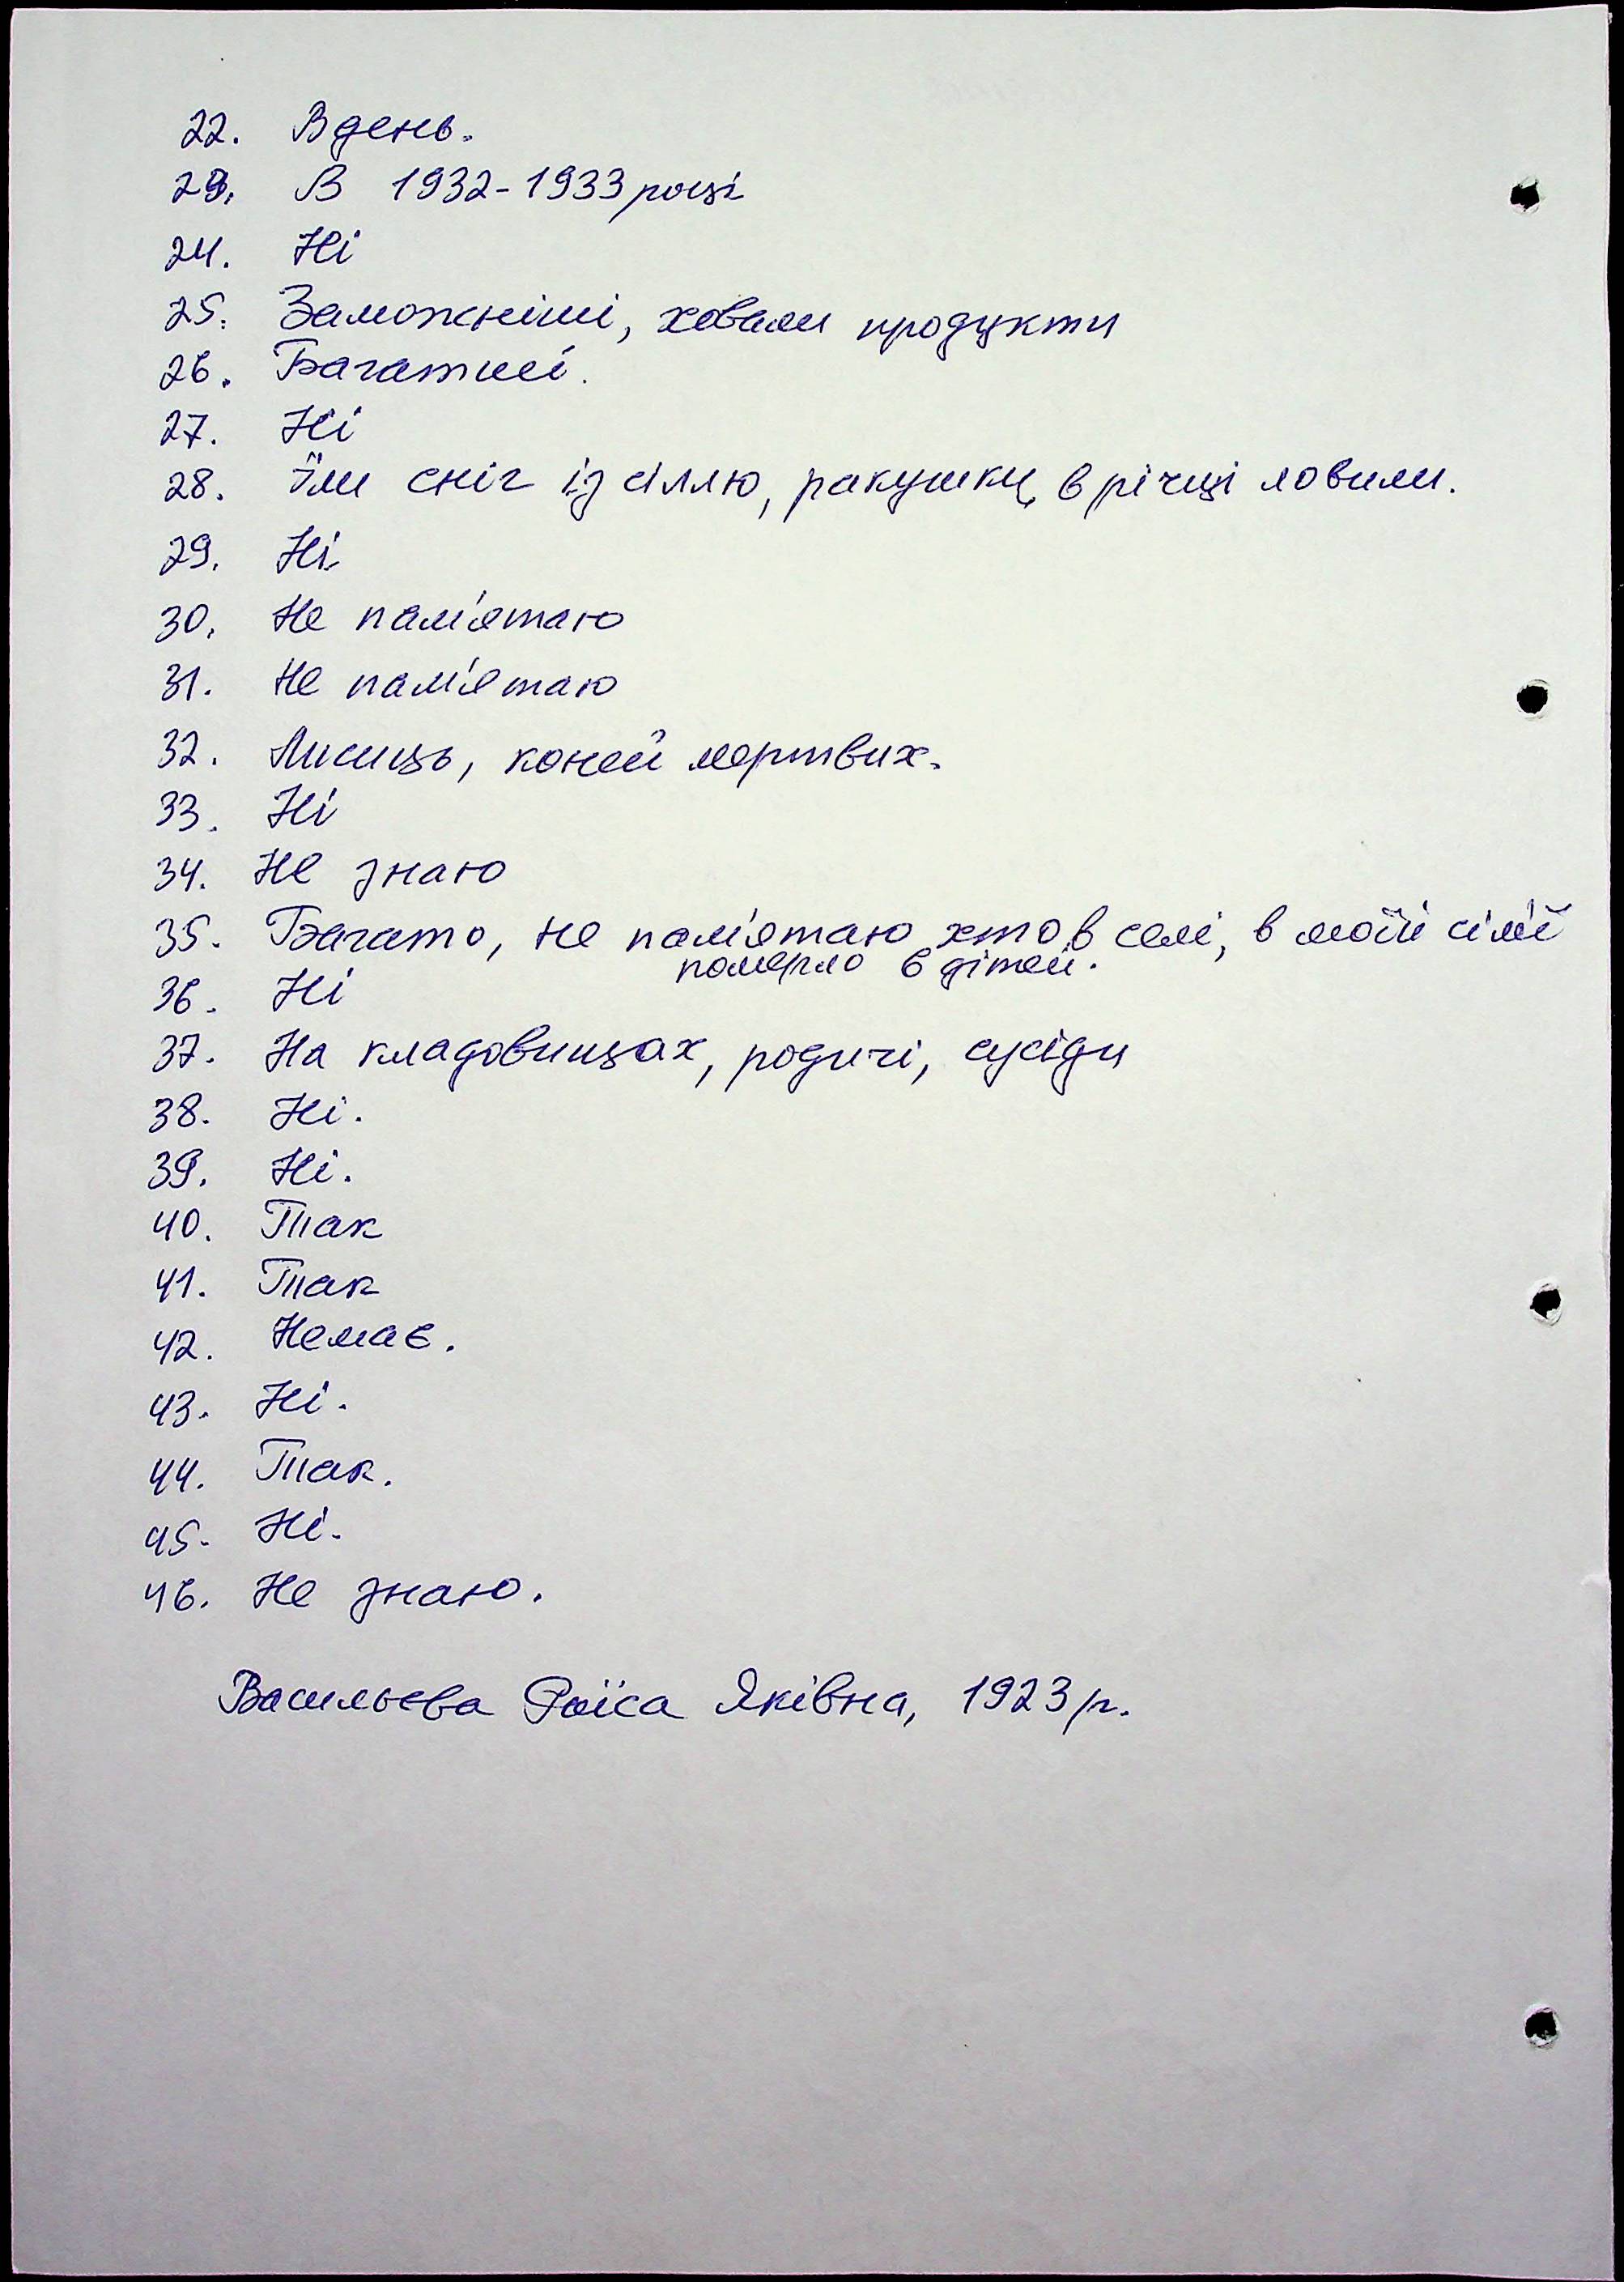 22. Вдень.
23. В 1932-1933 році
24. Ні
25. Заможніші, ховали продукти
26. Багатші.
27. Ні
28. Їли сніг із сіллю, ракушки в річці ловили.
29. Ні
30. Не пам'ятаю
31. Не пам'ятаю
32. Лисиць, коней мертвих.
33. Ні
34. Не знаю
35. Багато, не пам'ятаю хто в селі, в моїй сім'ї
померло 6 дітей.
36. Ні
37. На кладовищах, родичі, сусіди
38. Ні.
39. Ні.
40. Так
41. Так
42. Немає.
43. Ні.
44. Так.
45. Ні.
46. Не знаю.
Васильєва Раїса Яківна, 1923 р.